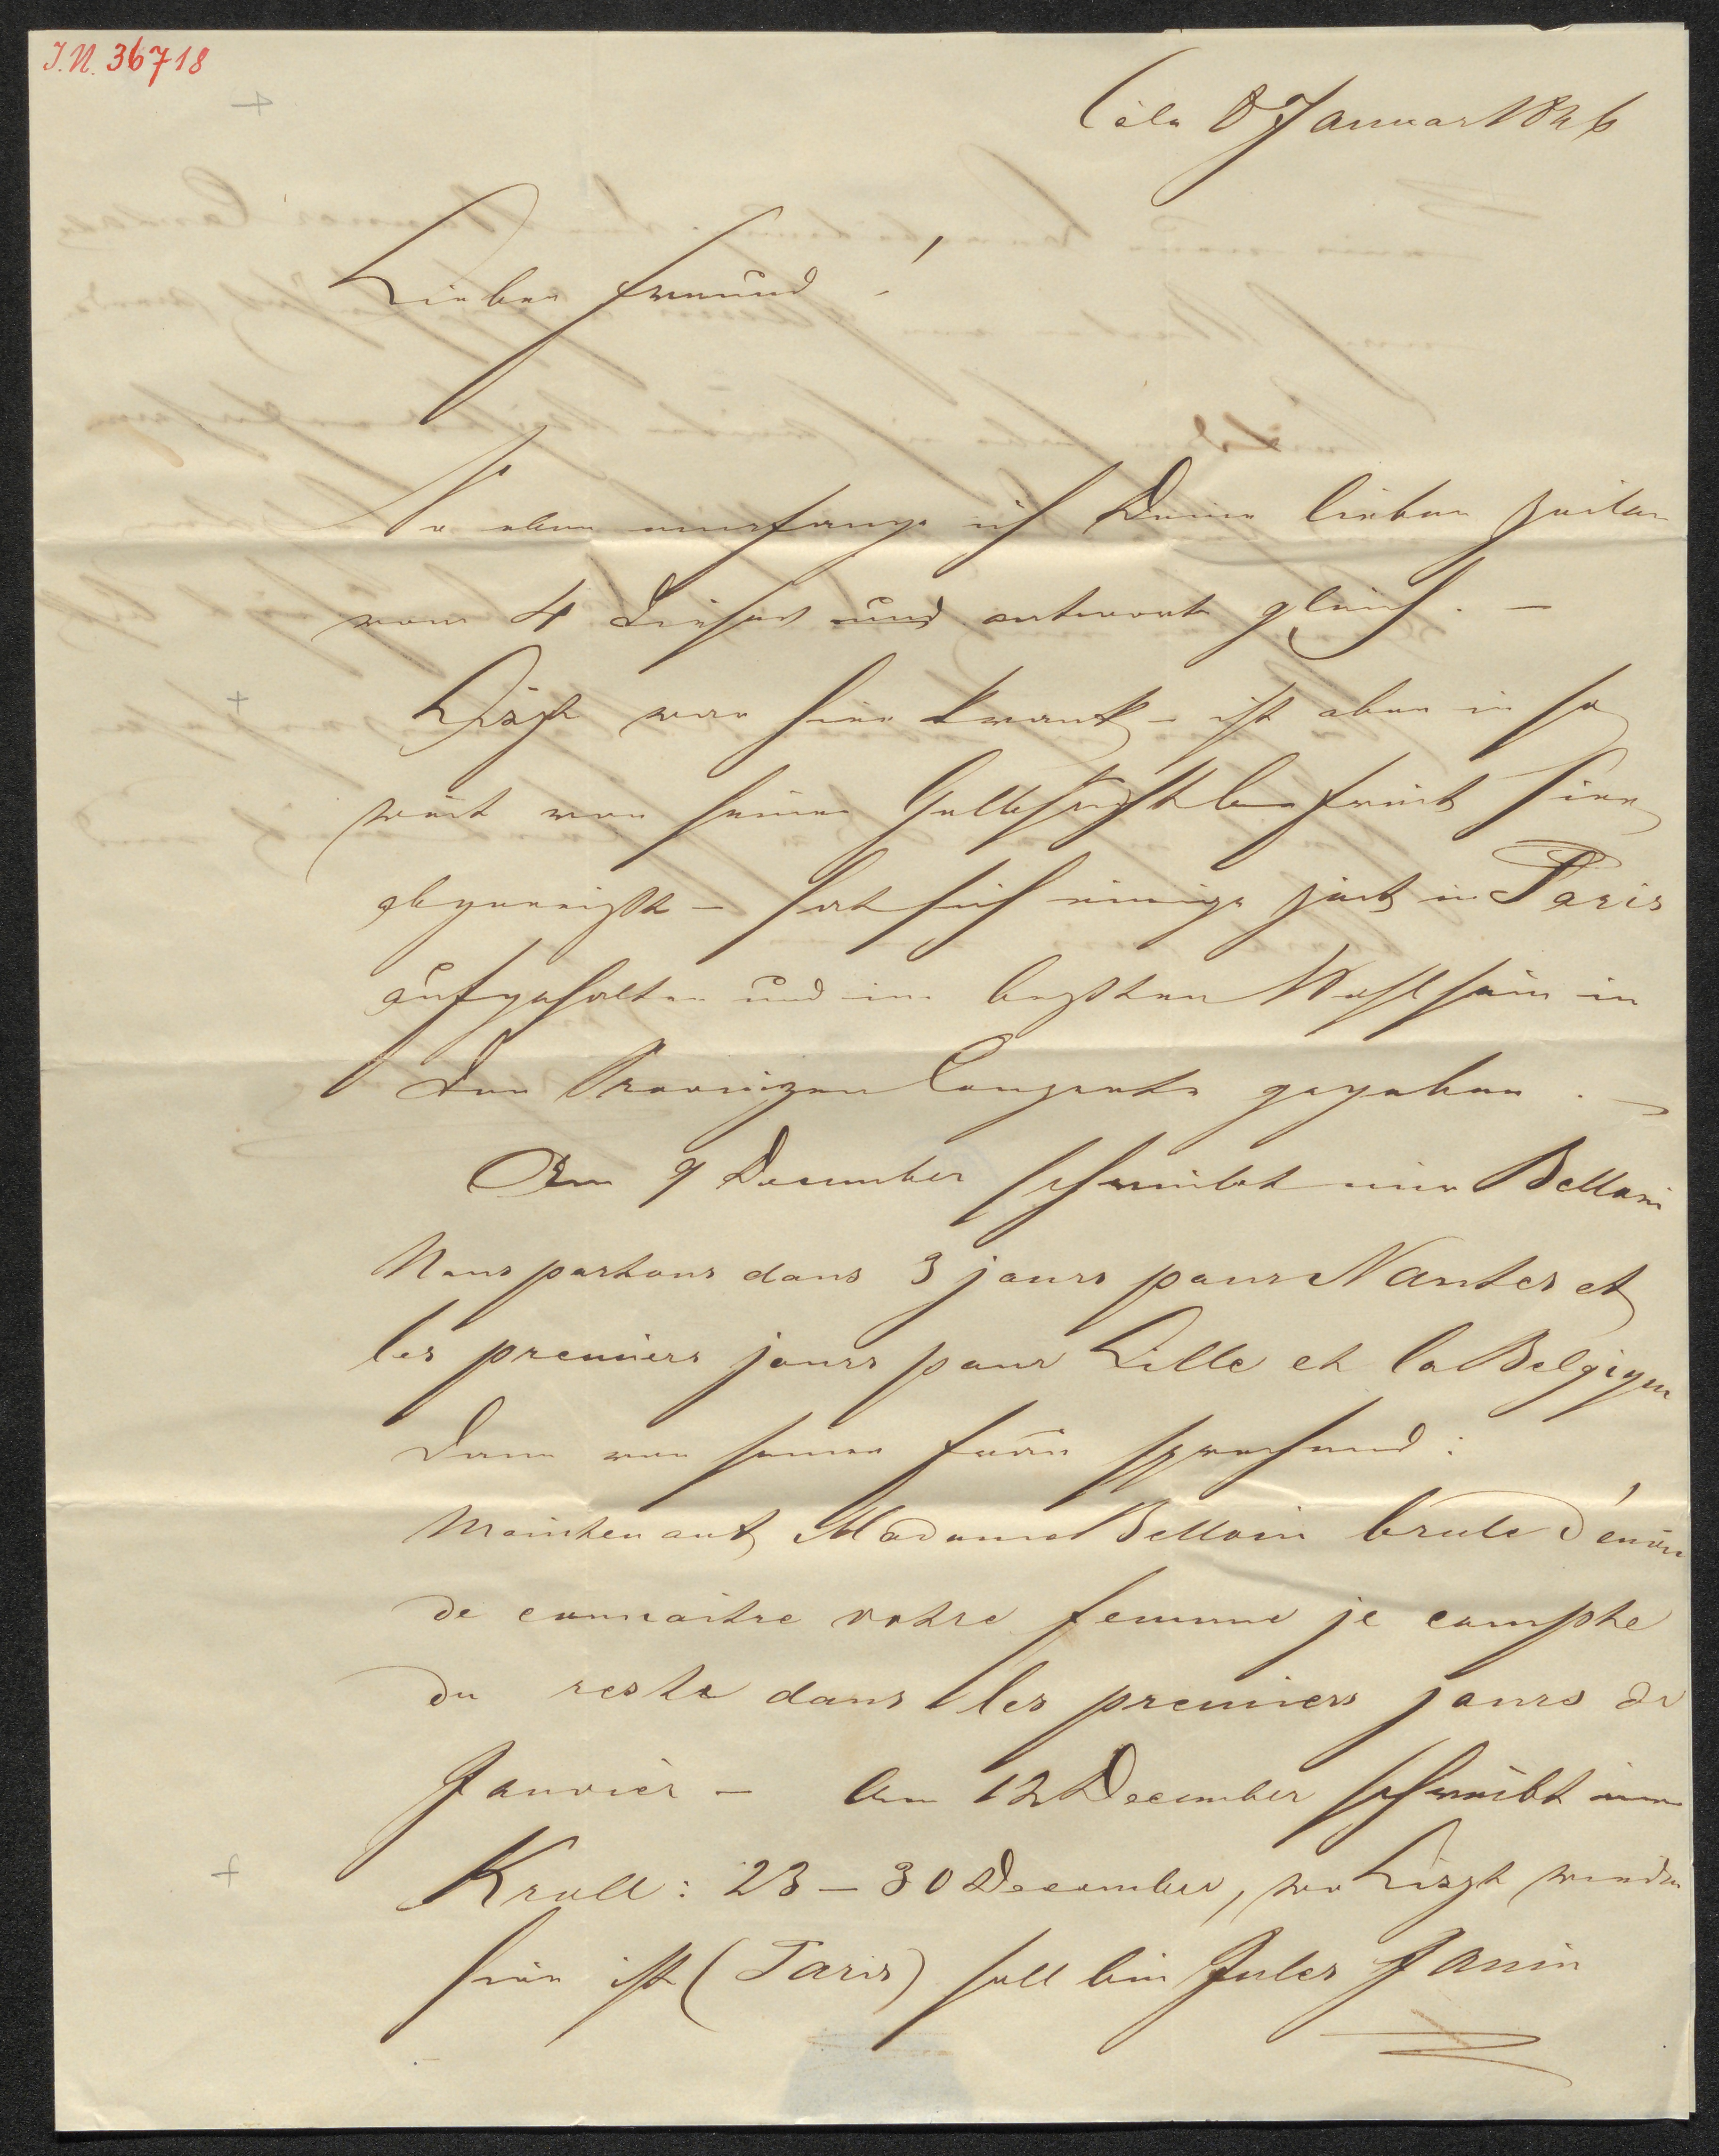 I.N. 36718
Cöln 8 Januar 1846
Lieber Freund!
So eben empfange ich Deine lieben Zeilen
vom 4 Dieses und antworte gleich. —
Liszt war hier krank – ist aber in so
weit von seiner Gelbsucht befreit hier
abgereißt – hat sich einige Zeit in Paris
aufgehalten und im beßten Wohlsein in
den Provinzen Conzerte gegeben. —
Am 9 December schreibt mir Belloni
Nous partons dans 3 jours pour Nantes et
les premiers jours pour Lille et la Belgique
Dann von seiner Frau sprechend:
Maintenant Madame Belloni brule d'envie
de connaitre votre femme je compte
du reste dans les premiers jours de
Janvier – Am 12 December schreibt mir
Kroll: 23 – 30 December, wo Liszt wieder
hier ist (Paris) soll bei Jules Janin